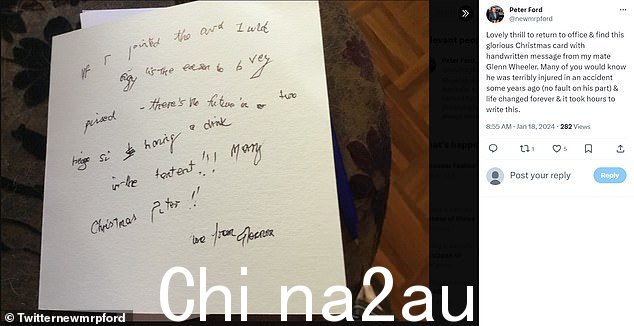 Peter Ford
@newmrpford
Lovely thrill to return to office & find this
glorious Christmas card with
handwritten message from my mate
Glenn Wheeler. Many of you would know
he was terribly injured in an accident
some years ago (no fault on his part) &
life changed forever & it took hours to
write this.
8:55 AM · Jan 18, 2024 · 282 Views
1
5
Post your reply
Reply
the card I
is the
to b very
- there's no
two
having a drink
in the
!!! Merry
Christmas Peter !!
from
© Twitternewmrpford
Chi na2au